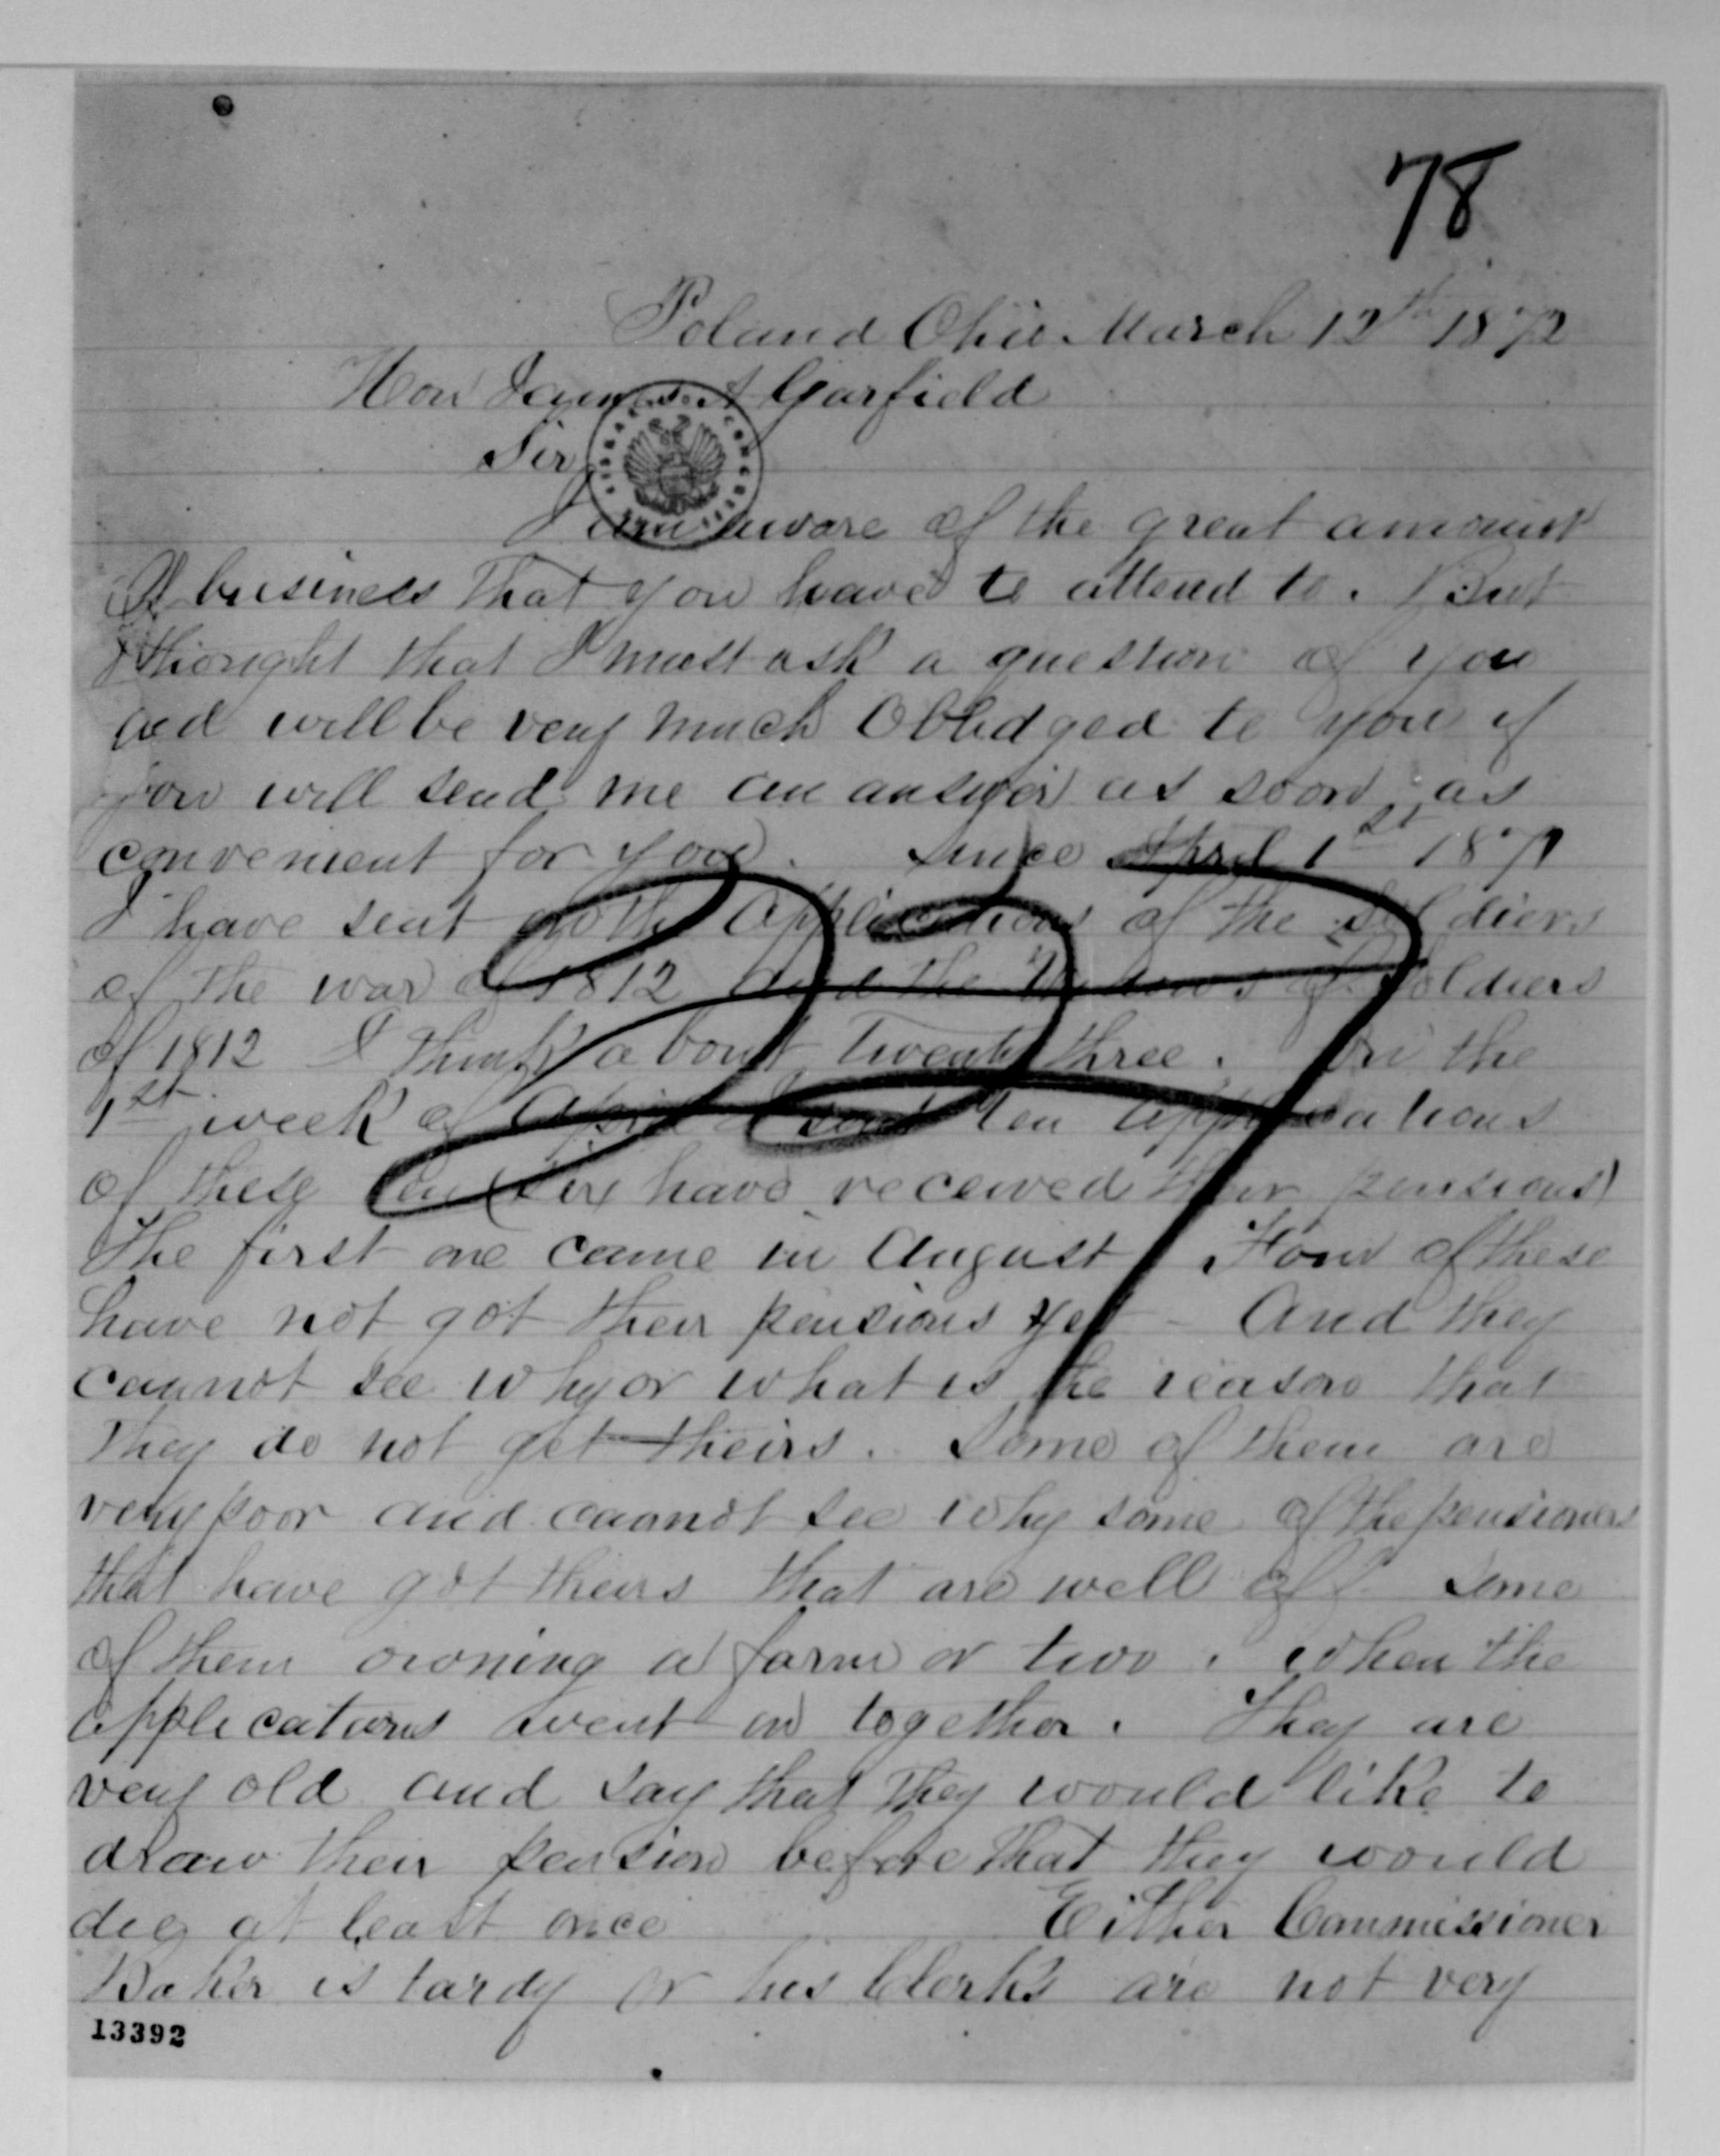 78
Poland Ohio March 12th 1872
Hon James A Garfield
Sir
I am aware of the great amount
of business that you have to attend to. But
I thought that I must ask a question of you
and will be very much Obledged to you if
you will send me an answer as soon as
convenient for you. Since April 1st 1871
I have sent on the applications of the soldiers
of the war of 1812 and the Widows of Soldiers
of 1812 I think about twenty three. On the
1st week of April I sent ten applications
of these ten six have received their pensions
The first one came in August Four of these
have not got their pensions yet - And they
cannot see why or what is the reason that
They do not get theirs. Some of them are
very poor and cannot see why some of the pensioners
that have got theirs that are well off. Some
of them owning a farm or two. when the
applications went on together. They are
very old and say that they would like to
draw their pension before that they would
die at least once Either Commissioner
Baker is tardy or his Clerks are not very
13392
237